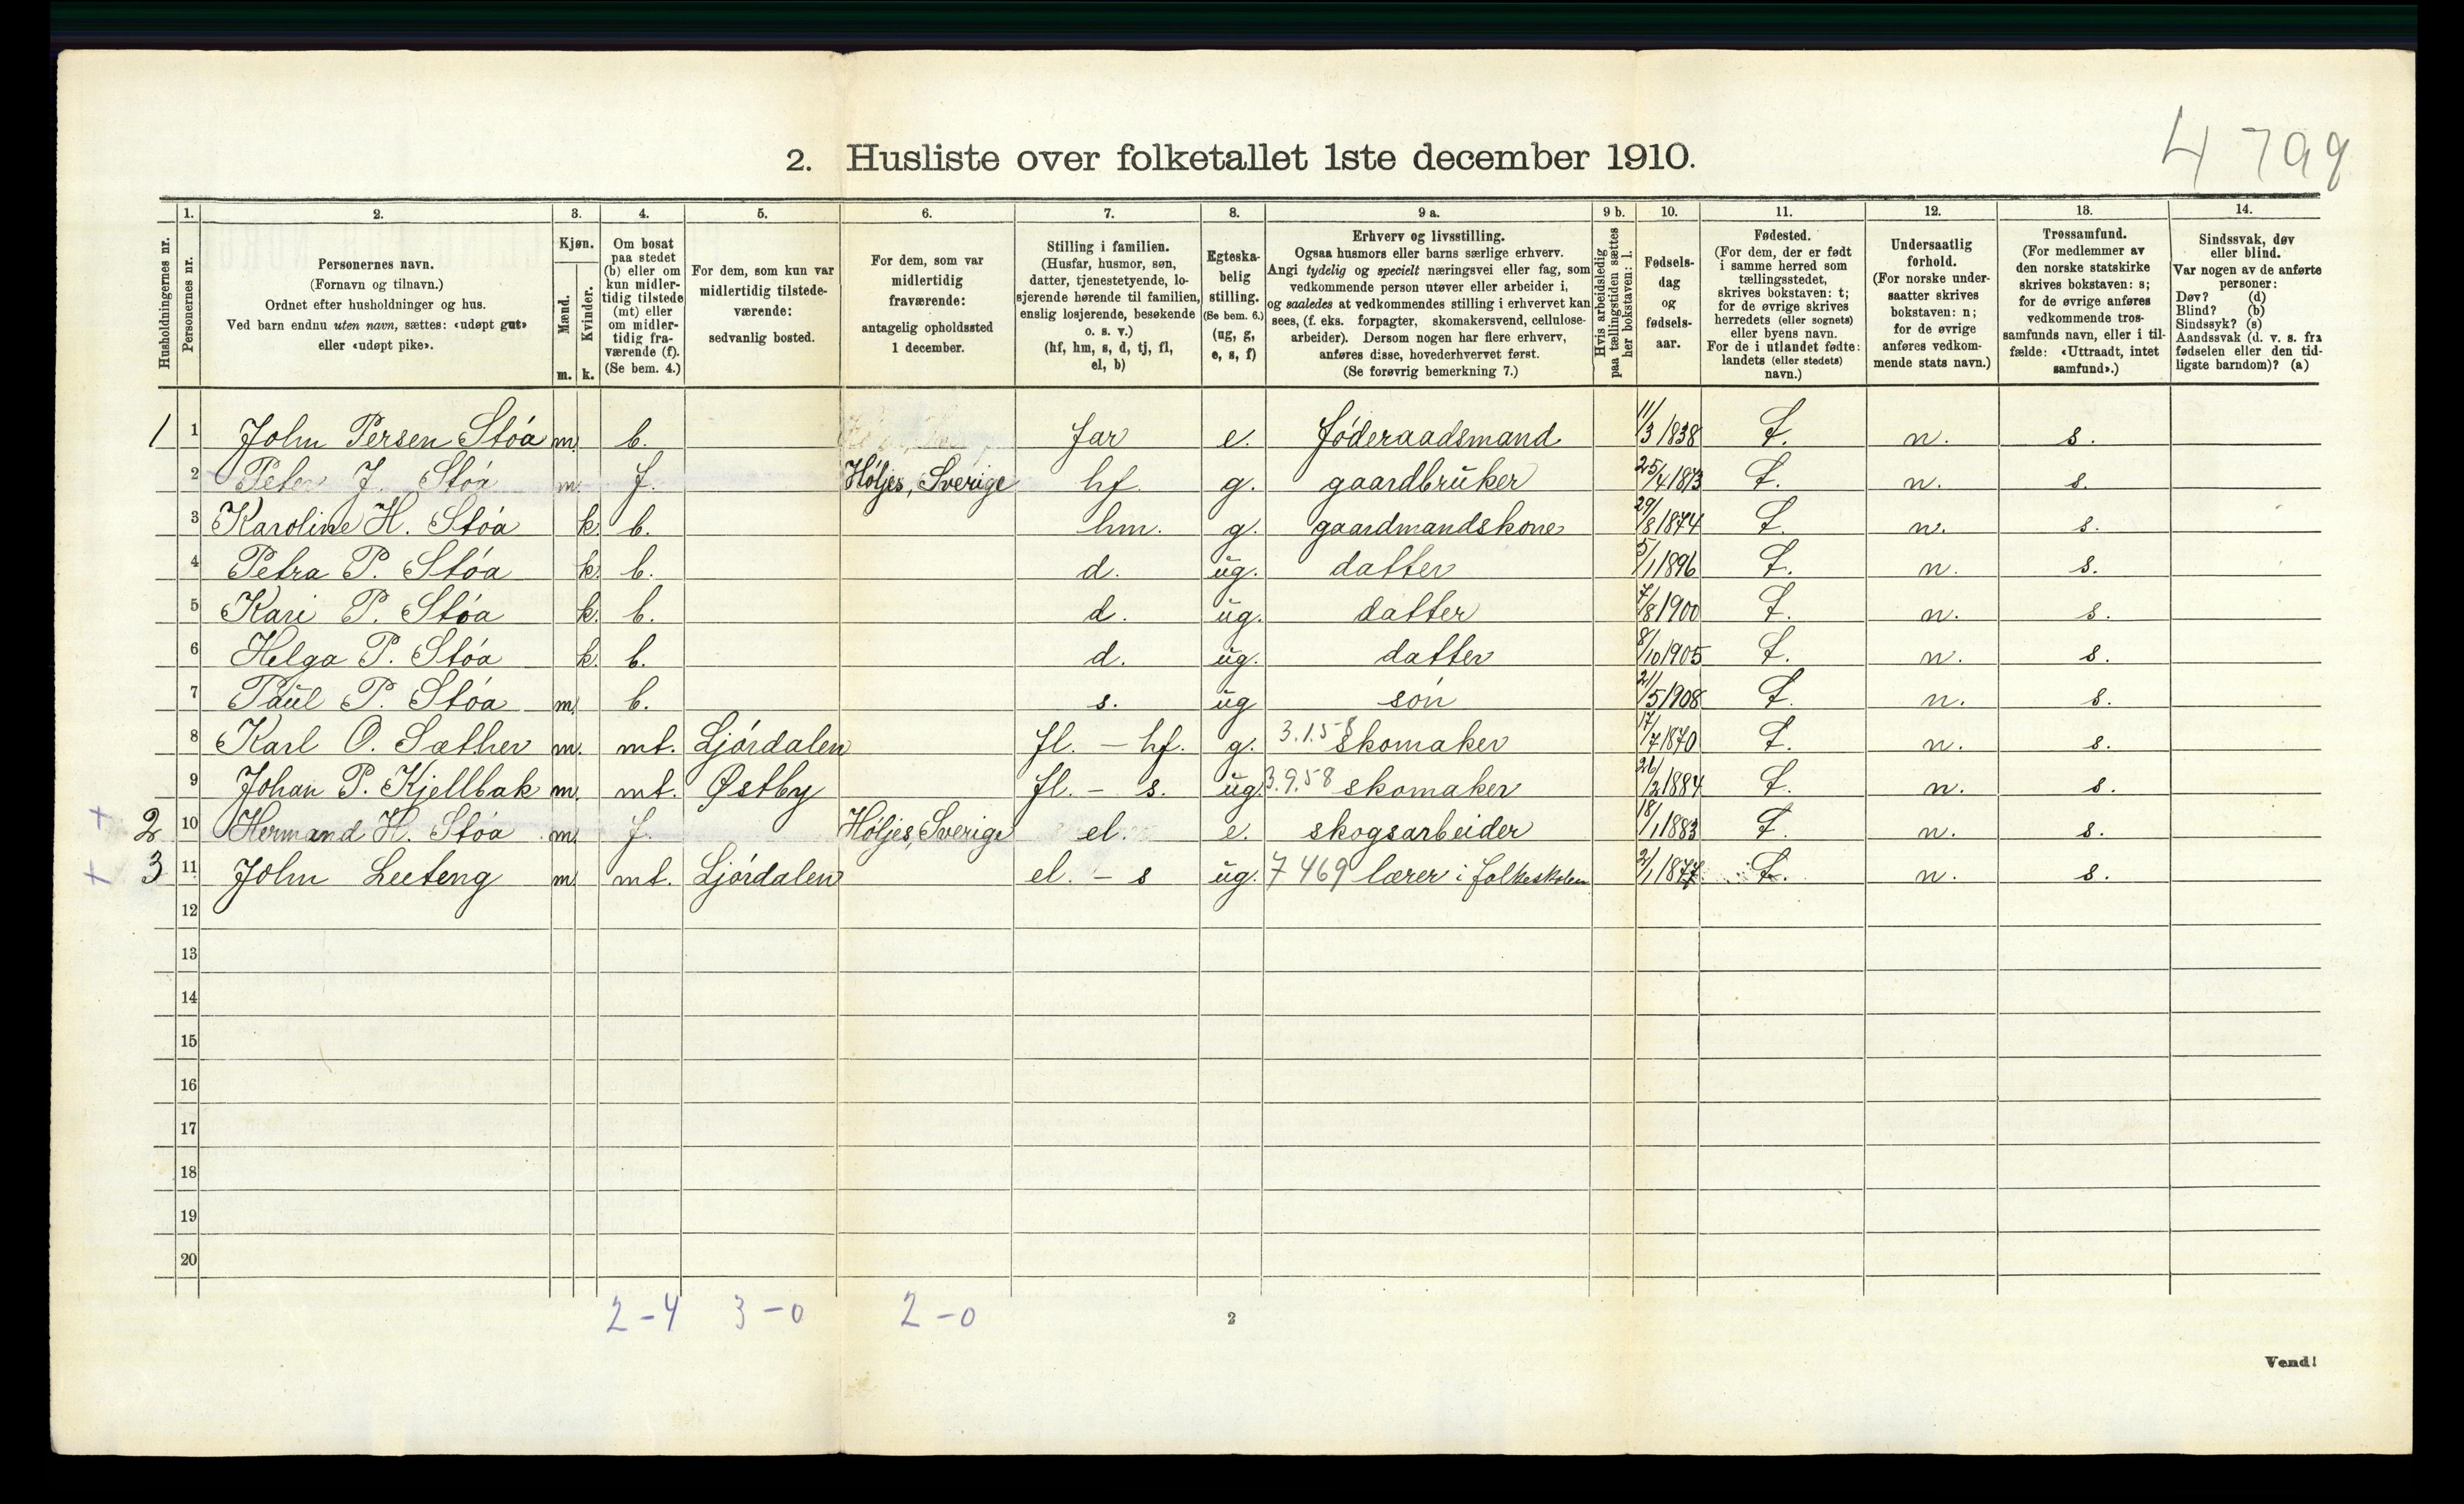 4799
2. Husliste over folketallet 1ste december 1910.
1. 2. 3. 4. 5. 6. 7. 8. 9 a. 9 b. 10. 11. 12. 13. 14.
Husholdningernes nr.
Personernes nr.
Personernes navn.
(Fornavn og tilnavn.)
Ordnet efter husholdninger og hus.
Ved barn endnu uten navn, sættes: «udøpt gut»
eller «udøpt pike».
Kjøn.
Mænd.
Kvinder.
m. k.
Om bosat
paa stedet
(b) eller om
kun midler-
tidig tilstede
(mt) eller
om midler-
tidig fra-
værende (f).
(Se bem. 4.)
For dem, som kun var
midlertidig tilstede-
værende:
sedvanlig bosted.
For dem, som var
midlertidig
fraværende:
antagelig opholdssted
1 december.
Stilling i familien.
(Husfar, husmor, søn,
datter, tjenestetyende, lo-
sjerende hørende til familien,
enslig losjerende, besøkende
o. s. v.)
(hf, hm, s, d, tj, fl,
el, b)
Egteska-
belig
stilling.
(Se bem. 6.)
(ug, g,
e, s, f)
Erhverv og livsstilling.
Ogsaa husmors eller barns særlige erhverv.
Angi tydelig og specielt næringsvei eller fag, som
vedkommende person utøver eller arbeider i,
og saaledes at vedkommendes stilling i erhvervet kan
sees, (f. eks. forpagter, skomakersvend, cellulose-
arbeider). Dersom nogen har flere erhverv,
anføres disse, hovederhvervet først.
(Se forøvrig bemerkning 7.)
Hvis arbeidsledig
paa tællingstiden sættes
her bokstaven: l.
Fødsels-
dag
og
fødsels-
aar.
Fødested.
(For dem, der er født
i samme herred som
tællingsstedet,
skrives bokstaven: t;
for de øvrige skrives
herredets (eller sognets)
eller byens navn.
For de i utlandet fødte:
landets (eller stedets)
navn.)
Undersaatlig
forhold.
(For norske under-
saatter skrives
bokstaven: n;
for de øvrige
anføres vedkom-
mende stats navn.)
Trossamfund.
(For medlemmer av
den norske statskirke
skrives bokstaven: s;
for de øvrige anføres
vedkommende tros-
samfunds navn, eller i til-
fælde: «Uttraadt, intet
samfund».)
Sindssvak, døv
eller blind.
Var nogen av de anførte
personer:
Døv? (d)
Blind? (b)
Sindssyk? (s)
Aandssvak (d. v. s. fra
fødselen eller den tid-
ligste barndom)? (a)
1 1 John Persen Støa m. b. far e. føderaadsmand 11/3 1838 t. n. s.
2 Peter J. Støa m. f. Höljes, Sverige hf. g. gaardbruker 25/4 1873 t. n. s.
3 Karoline H. Støa k. b. hm. g. gaardmandskone 29/8 1874 t. n. s.
4 Petra P. Støa k. b. d. ug. datter 5/1 1896 t. n. s.
5 Kari P. Støa k. b. d. ug. datter 7/8 1900 t. n. s.
6 Helga P. Støa k. b. d. ug. datter 8/10 1905 t. n. s.
7 Paul P. Støa m. b. s. ug søn 21/5 1908 t. n. s.
8 Karl O. Sæther m. mt. Ljørdalen fl. – hf. g. 3.1.58 skomaker 17/7 1870 t. n. s.
9 Johan P. Kjellbak m. mt. Østby fl. – s. ug. 3.9.58 skomaker 26/2 1884 t. n. s.
+ 2 10 Hermand H. Støa m. f. Höljes, Sverige el. e. skogsarbeider 18/1 1883 t. n. s.
+ 3 11 John Leeteng m. mt. Ljørdalen el. – s ug. 7 469 lærer i folkeskolen 2/1 1877 t. n. s.
12
13
14
15
16
17
18
19
20
2–4 3–0 2–0
2
Vend!